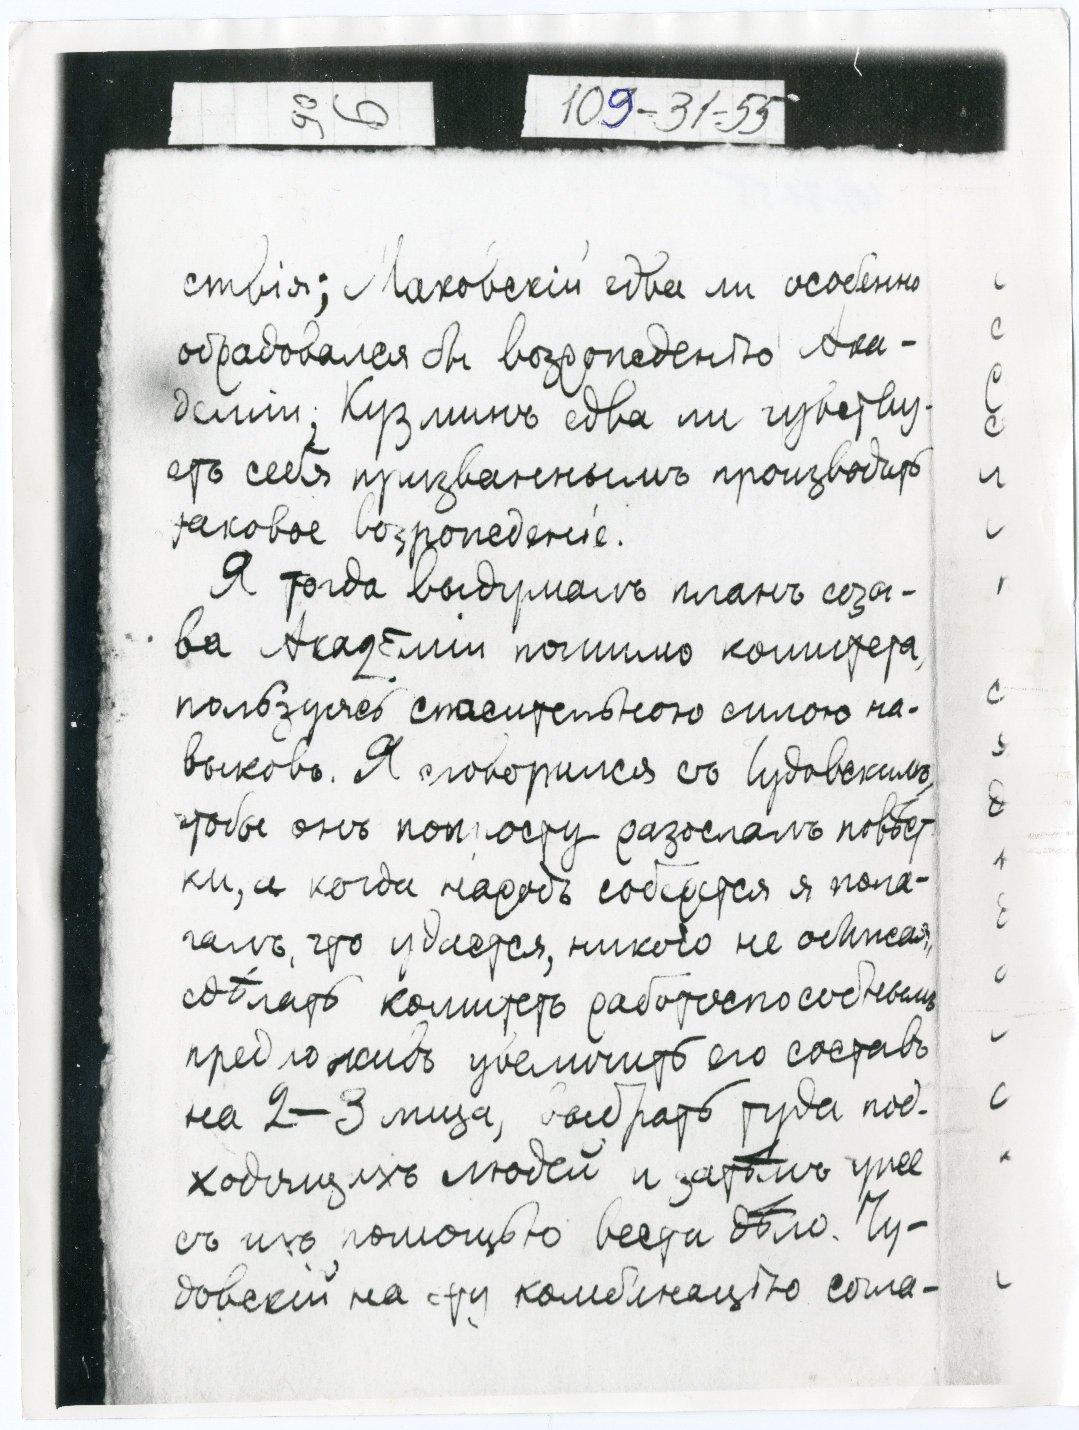 об 6
109-31-55
ствія; Маковскій едва ли особенно
обрадовался бы возрожденію Ака-
деміи; Кузминъ едва ли чувству-
етъ себя призваннымъ производить
таковое возрожденіе.
Я тогда выдумалъ планъ созы-
ва Академіи помимо комитета,
пользуясь спасительною силою на-
выковъ. Я сговорился съ Чудовскимъ,
чтобы онъ попросту разослалъ повѣст
ки, а когда народъ соберется я пола-
галъ, что удастся, никого не обижая,
сдѣлать комитетъ работоспособнымъ
предложивъ увеличить его составъ
на 2-3 лица, выбрать туда под-
ходящихъ людей и затѣмъ уже
съ ихъ помощью вести дѣло. Чу-
довскій на эту комбинацію согла-